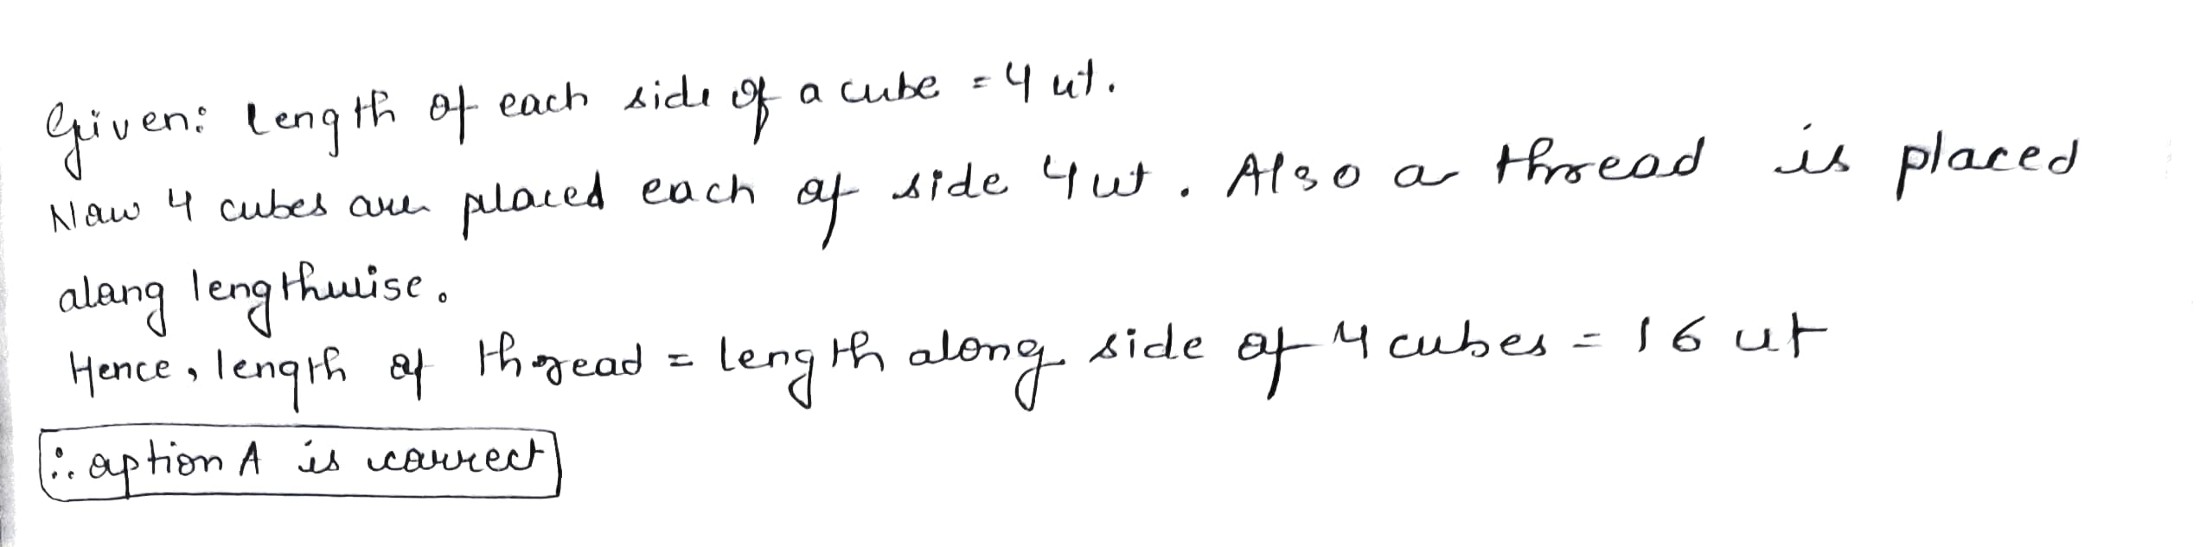 Given: length of each side of a cube = 4 ut.
Now 4 cubes are placed each of side 4ut. Also a thread is placed
along lengthwise.
Hence, length of thread = length along side of 4 cubes = 16 ut
∴ option A is correct